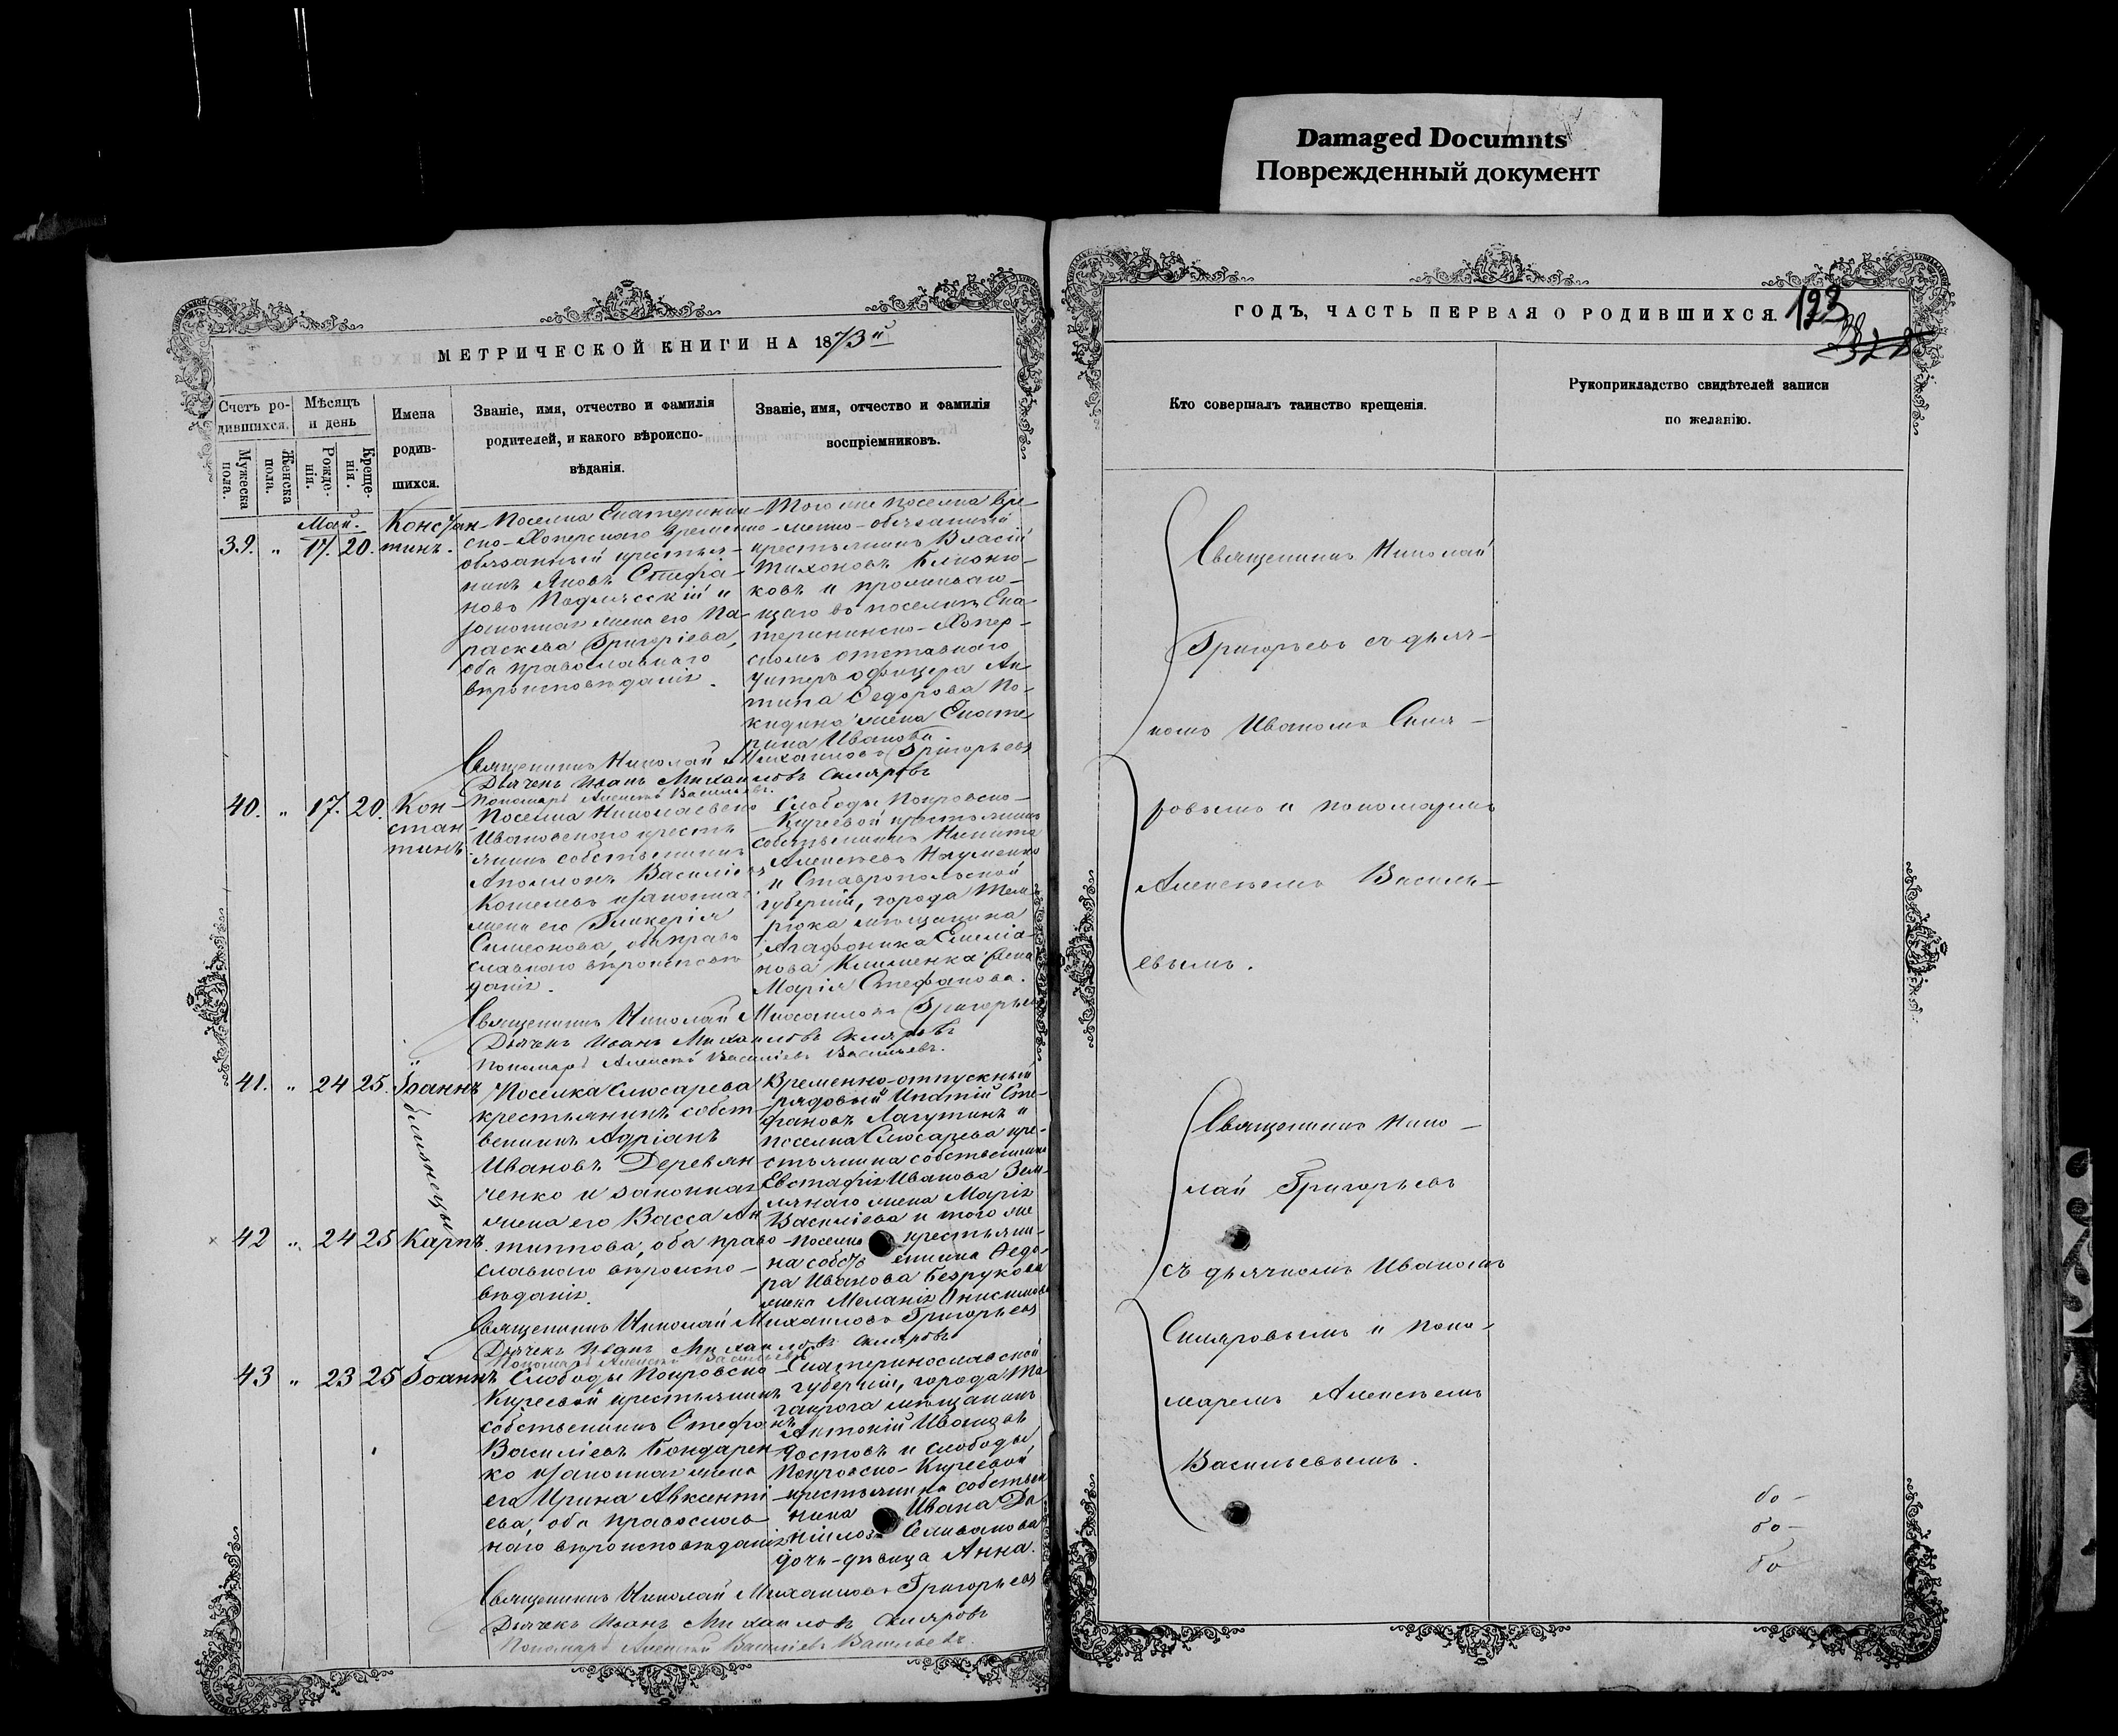 Damaged Documnts
Поврежденный документ
МЕТРИЧЕСКОЙ КНИГИ НА 1873й
Счетъ ро-
дившихся.
Мѣсяцъ
и день
Мужеска
пола.
Женска
пола.
Рожде-
нія.
Креще-
нія.
Имена
родив-
шихся.
Званіе, имя, отчество и фамилія
родителей, и какого вѣроиспо-
вѣданія.
Званіе, имя, отчество и фамилія
воспріемниковъ.
Май.
39. " 17. 20.
Констан-
тинъ.
Поселка Екатеринин-
ско-Хоперскаго временно-
обязанный крестья-
нинъ Яковъ Стефа-
новъ
и
законная жена его Па-
раскева Григоріева,
оба православнаго
вѣроисповѣданія.
Того же поселка вре-
менно-обязанный
крестьянинъ Власій
Тихоновъ
ковъ и проживаю-
щаго въ поселкѣ Ека-
терининско-Хопер-
скомъ отставнаго
унтеръ офицера Ан-
типа Федорова По-
кидина жена Екате-
рина Иванова.
Священникъ Николай Михаиловъ Григорьевъ
Дьячекъ Иванъ Михаиловъ Скляровъ
Пономарь Алексѣй Васильевъ.
40. " 17. 20.
Кон-
стан-
тинъ.
Поселка Николаевско-
Ивановскаго кресть-
янинъ собственникъ
Аполлонъ Василіевъ
Кошелевъ и законная
жена его Гликерія
Симеонова, оба право-
славнаго вѣроисповѣ-
данія.
Слободы Покровско-
Кирѣевой крестьянинъ
собственникъ Никита
Алексѣевъ Науменко
и Ставропольской
губерніи, города Тем-
рюка мѣщанина
Агафоника Емеліа-
нова Клименка жена
Марія Стефанова.
Священникъ Николай Михаиловъ Григорьевъ
Дьячекъ Иванъ Михаиловъ Скляровъ
Пономарь Алексѣй Василіевъ Васильевъ.
41. " 24 25.
Іоаннъ
близнецы
42 " 24 25
Карпъ.
Поселка Слюсарева
крестьянинъ собст-
венникъ Адріанъ
Ивановъ Деревян-
ченко и законная
жена его Васса Ан-
типова, оба право-
славнаго вѣроиспо-
вѣданія.
Временно-отпускный
рядовый Ипатій Сте-
фановъ Лагутинъ и
поселка Слюсарева кре-
стьянина собственника
Евстафія Иванова Зем-
лянаго жена Марія
Василіева и того же
поселка крестьяни-
на собственника Федо-
ра Иванова Безрукова
жена Меланія Онисимова
Священникъ Николай Михаиловъ Григорьевъ
Дьячекъ Иванъ Михаиловъ Скляровъ
Пономарь Алексѣй Васильевъ
43 " 23 25
Іоаннъ
Слободы Покровско-
Кирѣевой крестьянинъ
собственникъ Стефанъ
Василіевъ Бондарен-
ко и законная жена
его Ирина Авксенті-
ева, оба православ-
наго вѣроисповѣданія
Екатеринославской
губерніи, города Та-
ганрога мѣщанинъ
Антоній Ивановъ
и слободы
Покровско-Кирѣевой
крестьянина собствен-
ника Ивана Да-
нилова Селиванова
дочь-дѣвица Анна.
Священникъ Николай Михаиловъ Григорьевъ
Дьячекъ Иванъ Михаиловъ Скляровъ
Пономарь Алексѣй Василіевъ Васильевъ.
ГОДЪ, ЧАСТЬ ПЕРВАЯ О РОДИВШИХСЯ.
123
328
Кто совершалъ таинство крещенія.
Рукоприкладство свидѣтелей записи
по желанію.
Священникъ Николай
Григорьевъ съ дьяч-
комъ Иваномъ Скля-
ровымъ и пономаремъ
Алексѣемъ Василь-
евымъ.
Священникъ Нико-
лай Григорьевъ
съ дьячкомъ Иваномъ
Скляровымъ и поно-
маремъ Алексѣемъ
Васильевымъ.